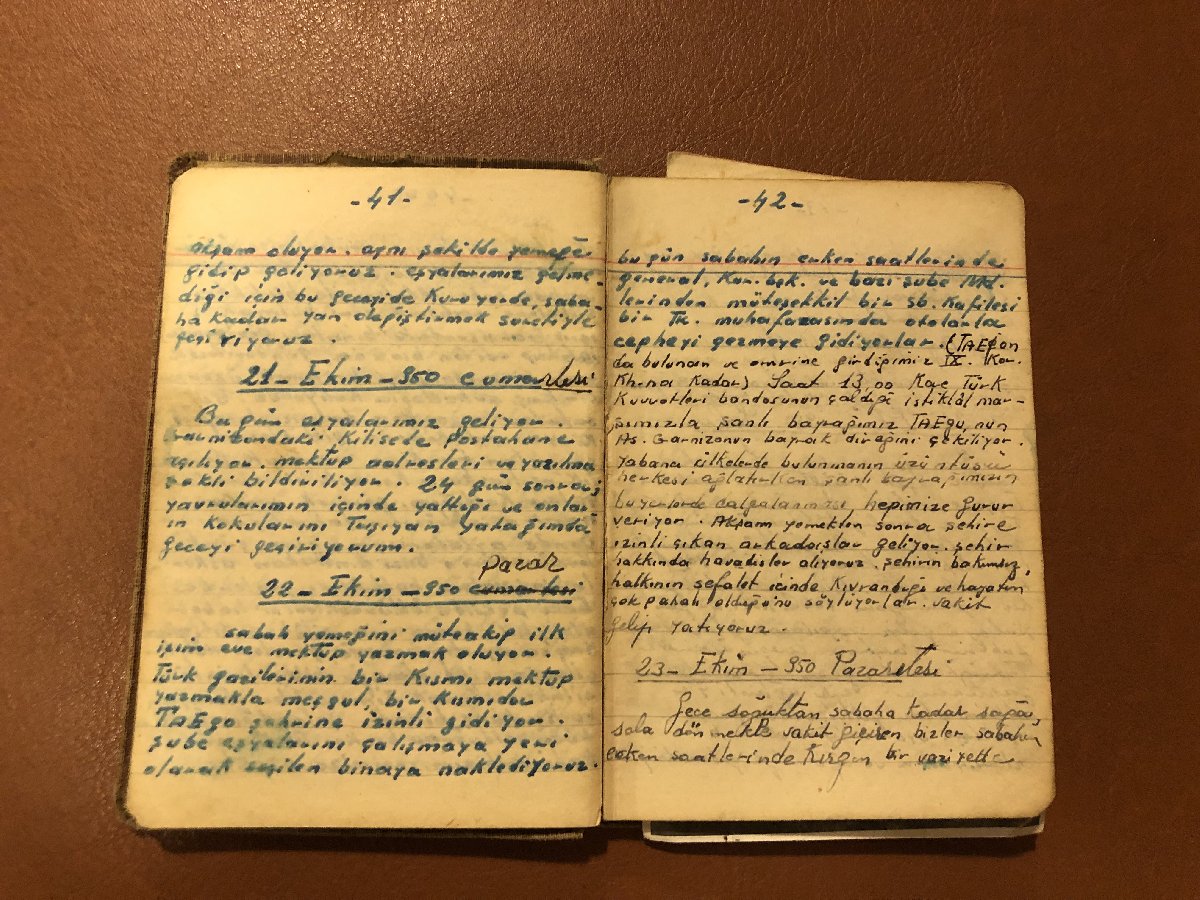 -41-
akşam oluyor. aynı şekilde yemeğe
gidip geliyoruz. eşyalarımız gelme-
diği için bu geceyide Kuru yerde, saba
ha kadar yan değiştirmek suretiyle
geçiriyoruz.
21- Ekim - 950 cumartesi
Bugün eşyalarımız geliyor.
Garnizondaki Kilisede Postahane
açılıyor. mektup adresleri ve yazılma
şekli bildiriliyor. 24 gün sonra;
yavrularımın içinde yattığı ve onla-
ın kokularını Taşıyan yatağımda
geceyi geçiriyorum.
pazar
22- Ekim - 950 cumartesi
sabah yemeğini müteakip ilk
işim eve mektup yazmak oluyor.
Türk gazilerinin bir Kısmı mektup
yazmakla meşgul, bir Kısmıda
TAEgo şehrine izinli gidiyor.
şube eşyalarını çalışmaya yeni
olarak seçilen binaya naklediyoruz.
-42-
bugün sabahın erken saatlerinde
general, Kur. bşk. ve bazı şube Md.
lerinden müteşekkil bir sb. Kafilesi
bir Tk. muhafazasında otolarla
cepheyi gezmeye gidiyorlar. (TAEgon
da bulunan ve emrine girdiğimiz IX. Kor.
Kh.na Kadar) Saat 13,00 Kore Türk
Kuvvetleri bandosunun çaldığı istiklâl mar-
şımızla şanlı bayrağımız TAEgu,nun
As. Garnizonun bayrak direğini çekiliyor.
yabancı ülkelerde bulunmanın üzüntüsü
herkesi ağlatırken şanlı bayrağımızın
bu yerlerde dalgalanması, hepimize Gurur
veriyor. Akşam yemekten sonra şehire
izinli çıkan arkadaşlar geliyor. şehir
hakkında havadisler alıyoruz. şehirin bakımsız,
halkının sefalet içinde Kıvrandığı ve hayatın
çok pahalı olduğunu söylüyorlar. vakit
gelip yatıyoruz.
23- Ekim - 950 Pazartesi
Gece soğuktan sabaha kadar sağa,
sola dönmekle vakit geçiren bizler sabahın
erken saatlerinde Kırgın bir vaziyette